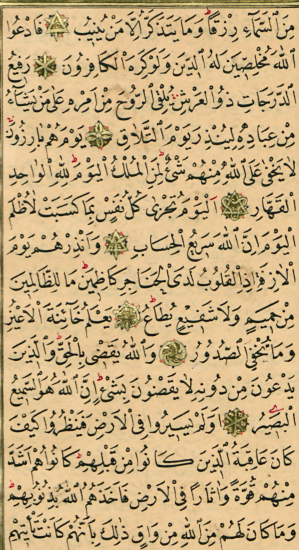 مِنَ السَّمَآءِ رِزْقًا وَمَا يَتَذَكَّرُ اِلَّا مَنْ يُنِيبُ فَادْعُوا
اللّٰهَ مُخْلِصِينَ لَهُ الدِّينَ وَلَوْ كَرِهَ الْكَافِرُونَ رَفِيعُ
الدَّرَجَاتِ ذُو الْعَرْشِ يُلْقِي الرُّوحَ مِنْ اَمْرِهِ عَلٰى مَنْ يَشَآءُ
مِنْ عِبَادِهِ لِيُنْذِرَ يَوْمَ التَّلَاقِ يَوْمَ هُمْ بَارِزُونَ
لَا يَخْفٰى عَلَى اللّٰهِ مِنْهُمْ شَيْءٌ لِمَنِ الْمُلْكُ الْيَوْمَ لِلّٰهِ الْوَاحِدِ
الْقَهَّارِ اَلْيَوْمَ تُجْزٰى كُلُّ نَفْسٍ بِمَا كَسَبَتْ لَا ظُلْمَ
الْيَوْمَ اِنَّ اللّٰهَ سَرِيعُ الْحِسَابِ وَاَنْذِرْهُمْ يَوْمَ
الْاٰزِفَةِ اِذِ الْقُلُوبُ لَدَى الْحَنَاجِرِ كَاظِمِينَ مَا لِلظَّالِمِينَ
مِنْ حَمِيمٍ وَلَا شَفِيعٍ يُطَاعُ يَعْلَمُ خَآئِنَةَ الْاَعْيُنِ
وَمَا تُخْفِي الصُّدُورُ وَاللّٰهُ يَقْضِي بِالْحَقِّ وَالَّذِينَ
يَدْعُونَ مِنْ دُونِهِ لَا يَقْضُونَ بِشَيْءٍ اِنَّ اللّٰهَ هُوَ السَّمِيعُ
الْبَصِيرُ اَوَلَمْ يَسِيرُوا فِي الْاَرْضِ فَيَنْظُرُوا كَيْفَ
كَانَ عَاقِبَةُ الَّذِينَ كَانُوا مِنْ قَبْلِهِمْ كَانُوا هُمْ اَشَدَّ
مِنْهُمْ قُوَّةً وَاٰثَارًا فِي الْاَرْضِ فَاَخَذَهُمُ اللّٰهُ بِذُنُوبِهِمْ
وَمَا كَانَ لَهُمْ مِنَ اللّٰهِ مِنْ وَاقٍ ذٰلِكَ بِاَنَّهُمْ كَانَتْ تَأْتِيهِمْ